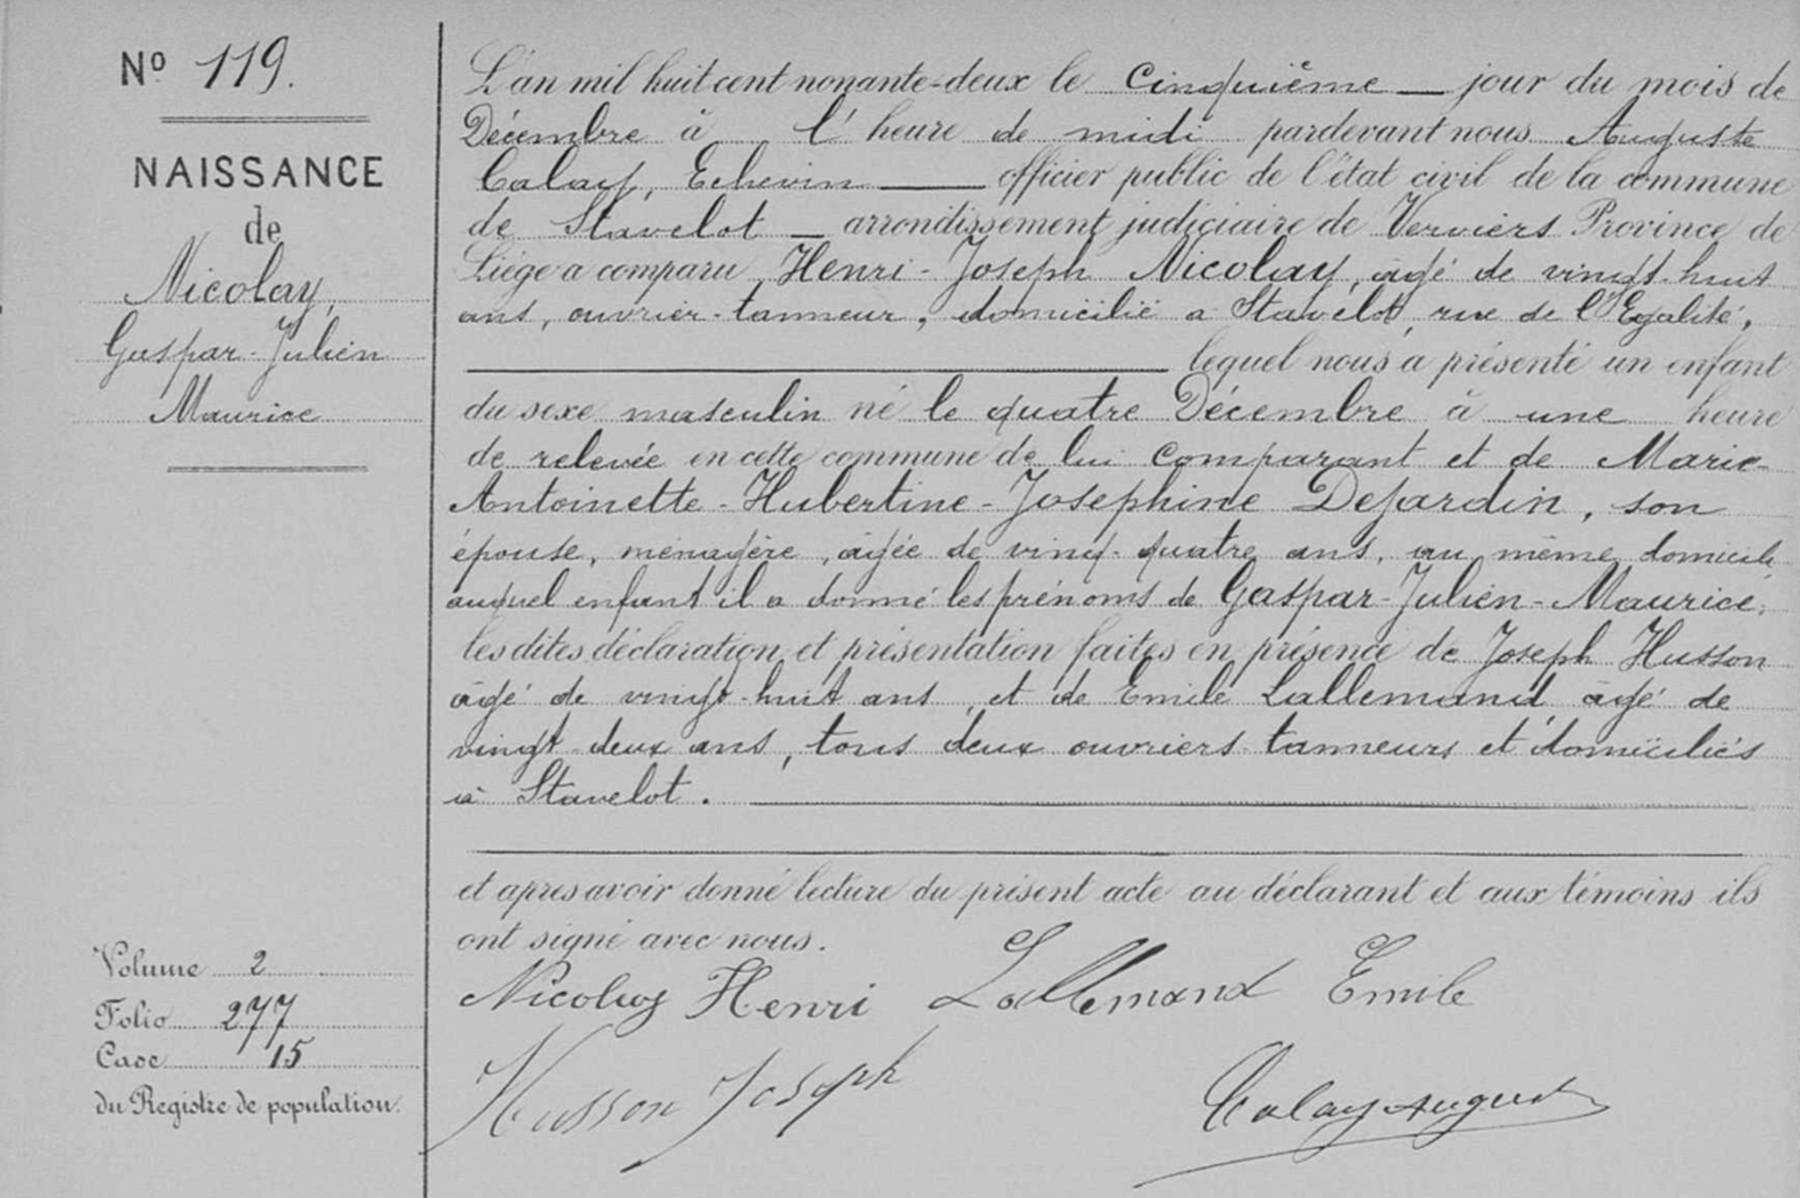 N° 119.
NAISSANCE
de
Nicolay,
Gaspar-Julien
Maurice
L'an mil huit cent nonante-deux le cinquième — jour du mois de
Décembre à l'heure de midi pardevant nous Auguste
Calay, Echevin — officier public de l'état civil de la commune
de Stavelot — arrondissement judiciaire de Verviers Province de
Liége a comparu Henri-Joseph Nicolay, âgé de vingt-huit
ans, ouvrier-tanneur, domicilié a Stavelot, rue de l'Egalité,
lequel nous a présenté un enfant
du sexe masculin né le quatre Décembre à une heure
de relevée en cette commune de lui comparant et de Marie-
Antoinette-Hubertine-Josephine Dejardin, son
épouse, ménagère, âgée de vingt-quatre ans, au même domicile
auquel enfant il a donné les prénoms de Gaspar-Julien-Maurice,
les dites déclaration et présentation faites en présence de Joseph Husson
âgé de vingt-huit ans, et de Emile Lallemand âgé de
vingt-deux ans, tous deux ouvriers-tanneurs et domiciliés
à Stavelot.
et apres avoir donné lecture du présent acte au déclarant et aux témoins ils
ont signé avec nous.
Nicolay Henri Lallemand Emile
Husson Joseph Calay August
Volume 2
Folio 277
Case 15
du Registre de population.